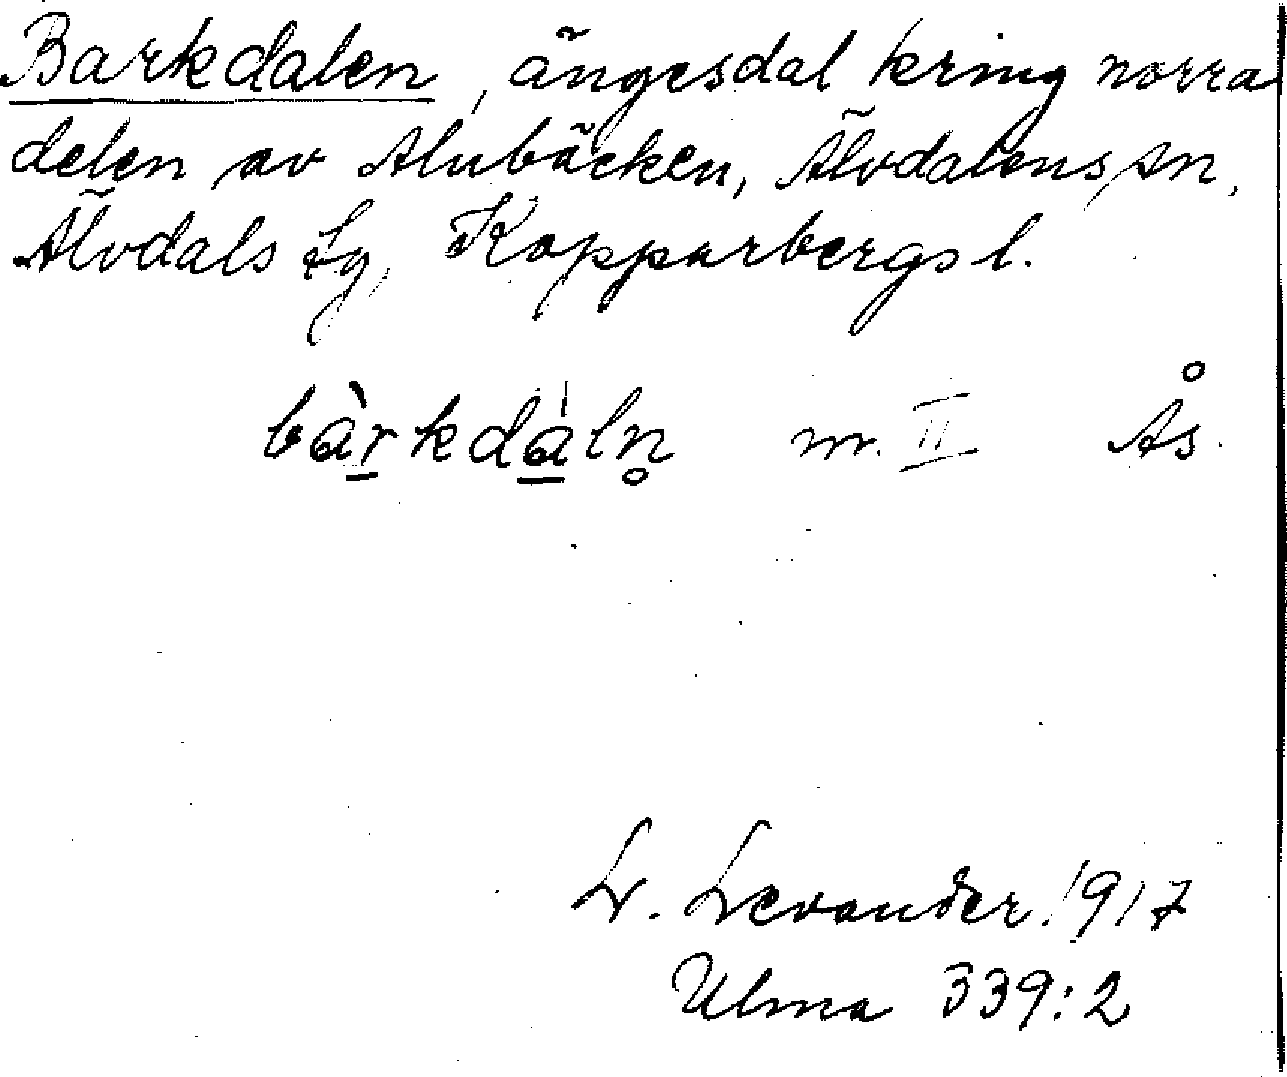 Barkdalen, ängesdal kring norra
delen av Alubäcken, Älvdalens sn,
Älvdals tg, Kopparbergs l.
bàr̲kda̲̍ln̥ m. II Ås.
L. Levander 1917
Ulma 339:2